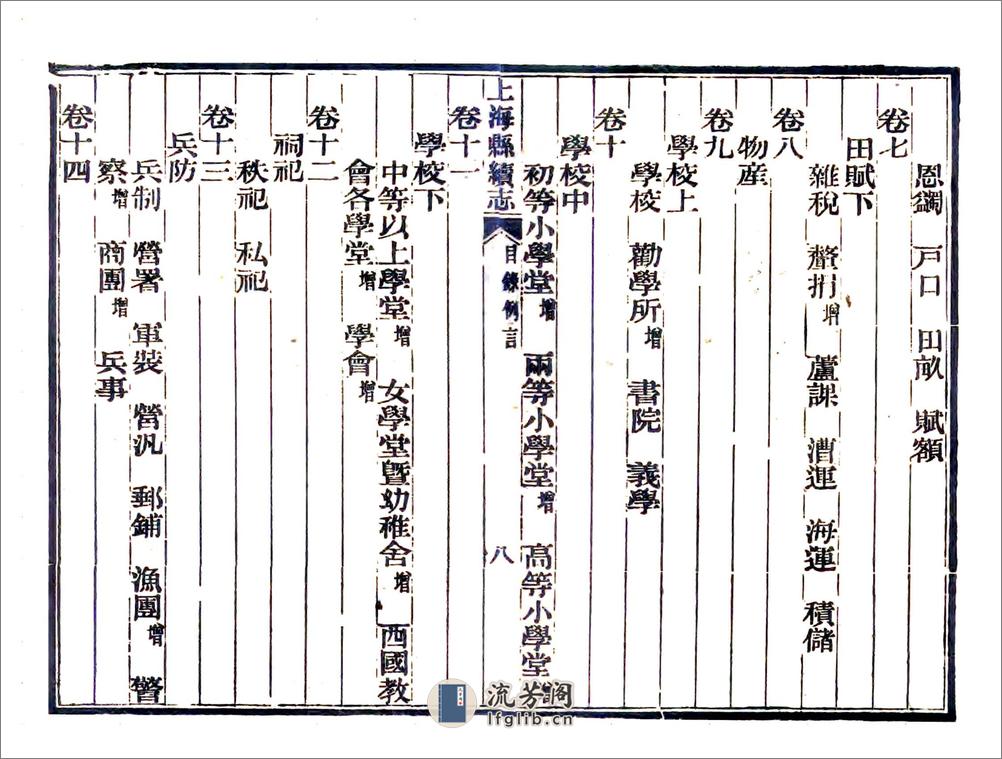 恩蠲 戶口 田畝 賦額
卷七
田賦下
雜稅 釐捐增 蘆課 漕運 海運 積儲
卷八
物産
卷九
學校上
學校 勸學所增 書院 義學
卷十
學校中
初等小學堂增 兩等小學堂增 高等小學堂
上海縣續志 目錄例言 八
卷十一
學校下
中等以上學堂增 女學堂暨幼稚舍增 西國教
會各學堂增 學會增
卷十二
祠祀
秩祀 私祀
卷十三
兵防
兵制 營署 軍裝 營汛 郵鋪 漁團增 警
察增 商團增 兵事
卷十四
流芳閣
lfglib.cn